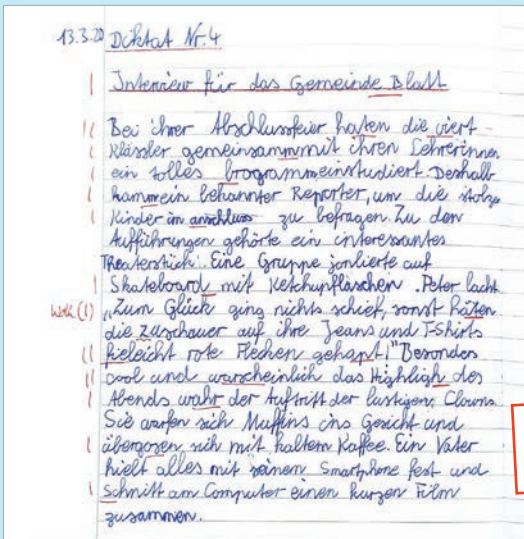 13.3.20 Diktat Nr. 4
| Interview für das Gemeinde Blatt
|| Bei ihrer Abschlussfeier haten die viert-
| klässler gemeinsammmit ihren Lehrerinnen
| ein tolles brogrammeinstudiert. Deshalb
| kammein bekannter Reporter, um die stolze
| Kinder im anschluss zu befragen. Zu den
Aufführungen gehörte ein interessantes
Theaterstück. Eine Gruppe jonlierte auf
| Skateboard mit Ketchupfläschen. Peter lacht
Wdh. (|) „Zum Glück ging nichts schief, sonst häten
die zuschauer auf ihre Jeans und T-Shirts
|| fieleicht rote Flecken gehapt!" Besonders
|| cool und warscheinlich das Highligh des
| Abends wahr der Auftritt der lustigen Clowns.
Sie warfen sich Muffins ins Gesicht und
| übergosen sich mit kaltem Kaffee. Ein Vater
hielt alles mit seinen Smartphone fest und
| Schnitt am Computer einen kurzen Film
zusammen.